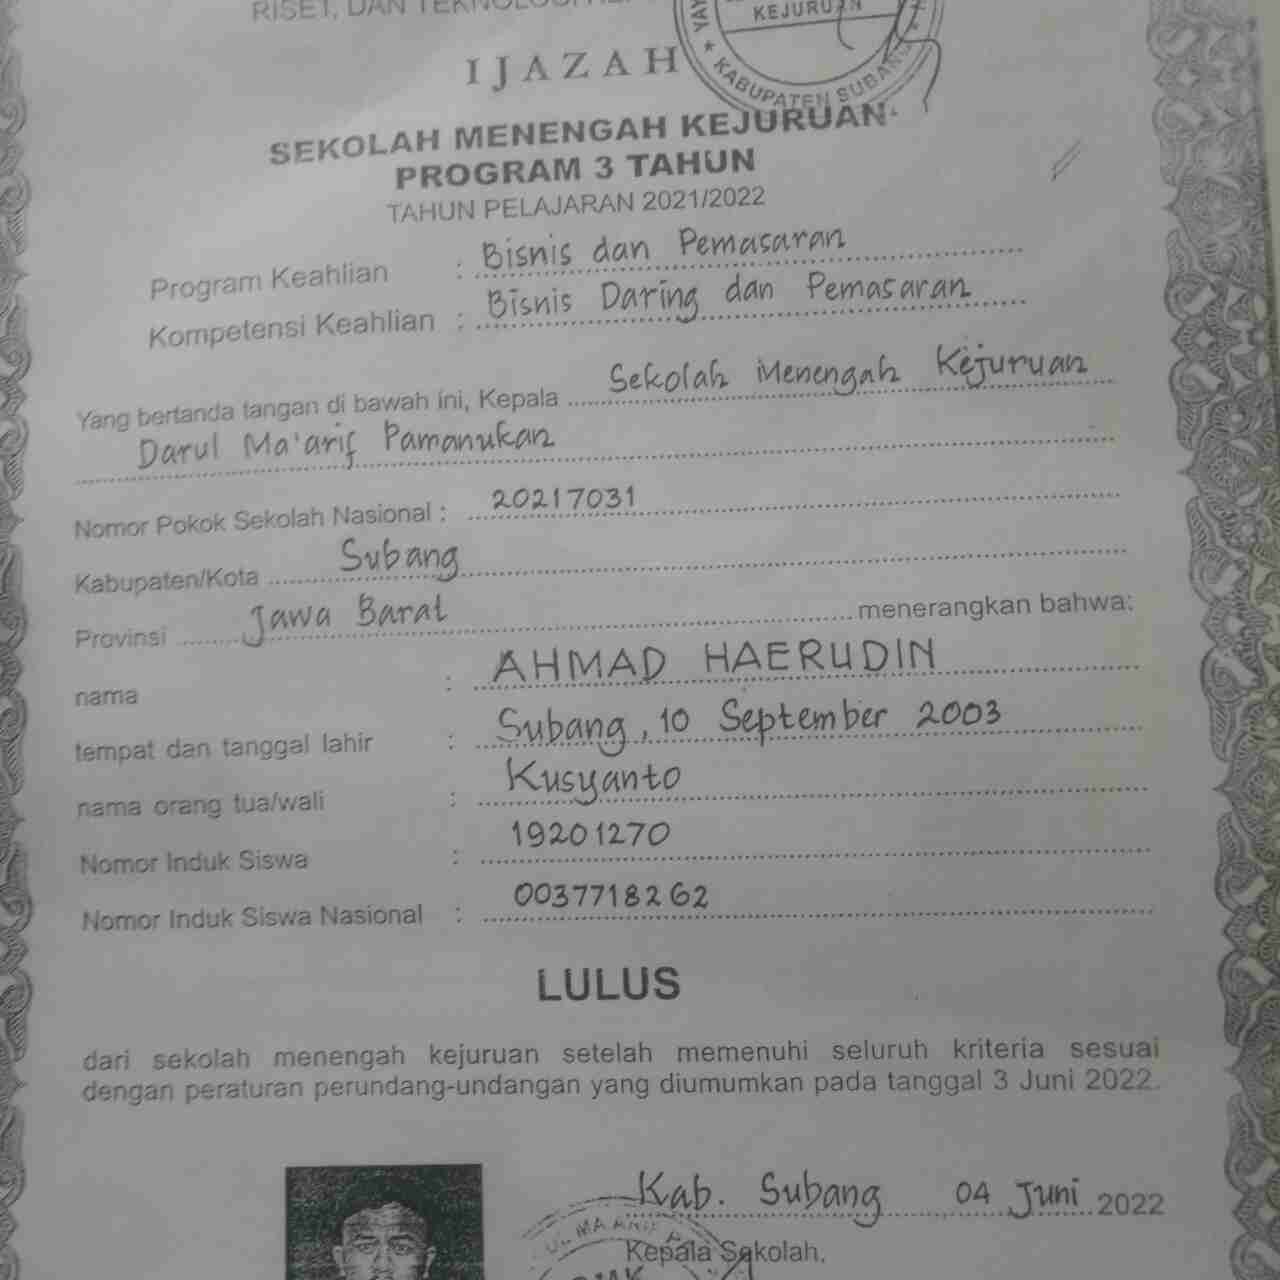 RISET, DAN TEKNOLOGI
KEJURUAN
★ KABUPATEN SUBANG
IJAZAH
SEKOLAH MENENGAH KEJURUAN
PROGRAM 3 TAHUN
TAHUN PELAJARAN 2021/2022
Program Keahlian : Bisnis dan Pemasaran
Kompetensi Keahlian : Bisnis Daring dan Pemasaran
Yang bertanda tangan di bawah ini, Kepala Sekolah Menengah Kejuruan
Darul Ma'arif Pamanukan
Nomor Pokok Sekolah Nasional : 20217031
Kabupaten/Kota Subang
Provinsi Jawa Barat menerangkan bahwa:
nama : AHMAD HAERUDIN
tempat dan tanggal lahir : Subang, 10 September 2003
nama orang tua/wali : Kusyanto
Nomor Induk Siswa : 19201270
Nomor Induk Siswa Nasional : 0037718262
LULUS
dari sekolah menengah kejuruan setelah memenuhi seluruh kriteria sesuai
dengan peraturan perundang-undangan yang diumumkan pada tanggal 3 Juni 2022.
Kab. Subang 04 Juni 2022
Kepala Sekolah,